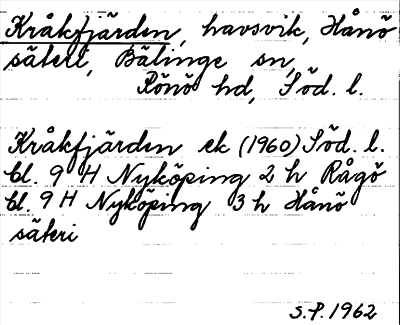 Kråkfjärden, havsvik, Hånö
säteri, Bälinge sn,
Rönö hd, Söd. l.
Kråkfjärden ek (1960) Söd. l.
bl. 9 H Nyköping 2 h Rågö
bl. 9 H Nyköping 3 h Hånö
säteri
S.P. 1962